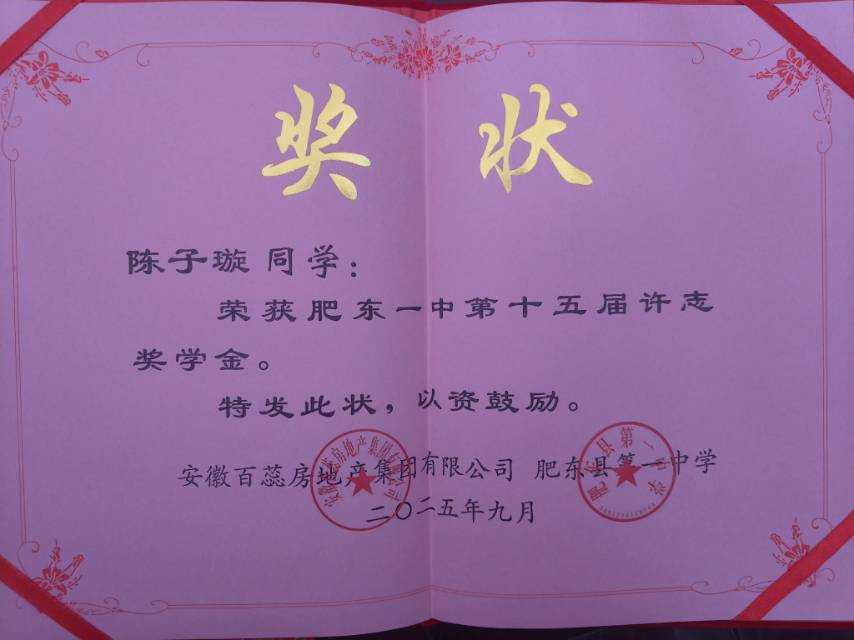 奖 状
陈子璇 同学：
荣获肥东一中第十五届许志
奖学金。
特发此状，以资鼓励。
安徽百蕊房地产集团有限公司 肥东县第一中学
二〇二五年九月
肥东县第一中学